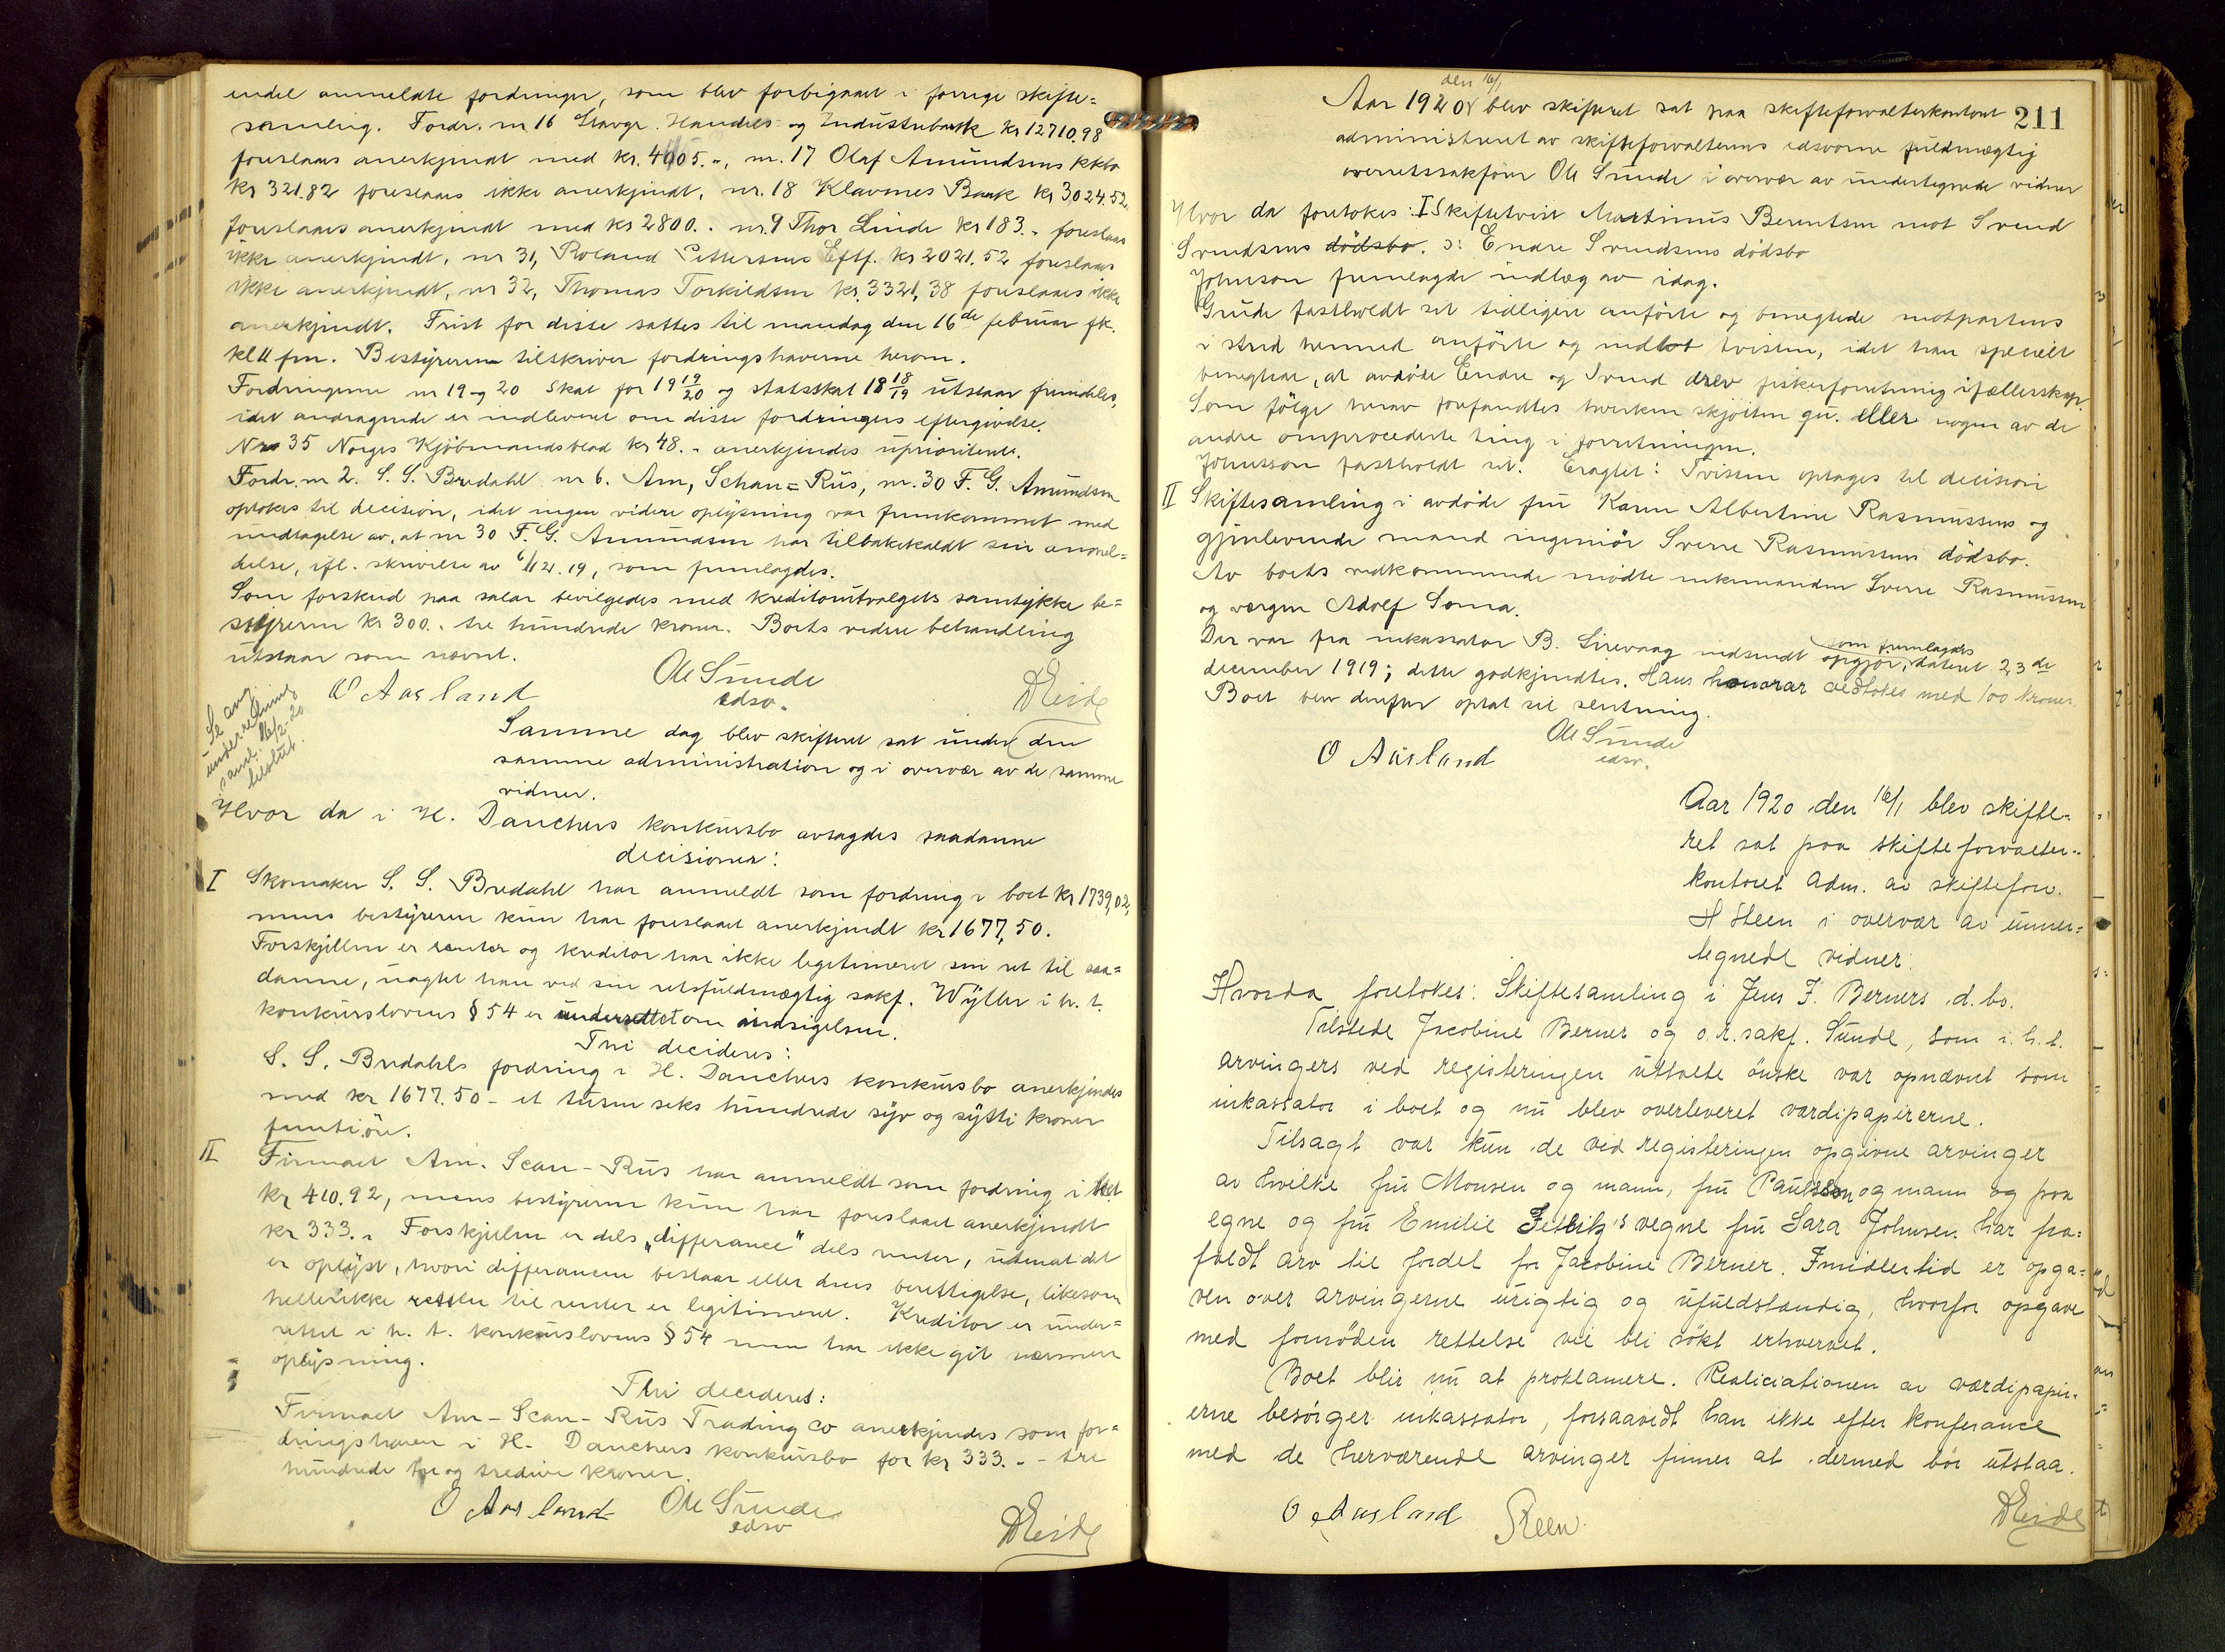 endel anmeldte fordringer, som blev forbigaaet i forrige skifte=
samling. Fordr. nr 16 Stavgr. Handels- og Industribank kr 12710.98
foreslaaes anerkjendt med kr. 4005.-, nr. 17 Olaf Amundsens kkbo
kr 321.82 foreslaaes ikke anerkjendt, nr. 18 Klavenes Bank kr 3024.52,
foreslaaes anerkjendt med kr 2800.- nr. 9 Thor Linde kr 183.- foreslaaes
ikke anerkjendt, nr 31, Roland Pettersens Eftf. kr 2021.52 foreslaaes
ikke anerkjendt, nr 32, Thomas Torkildsen kr. 3321,38 foreslaaes ikke
anerkjendt. Frist for disse sattes til mandag den 16de februar fk.
kl 11 fm. Bestyreren tilskriver fordringshaverne herom.
Fordringerne nr 19 og 20 Skat for 19 19/20 og statsskat 18 18/19 utstaar fremdeles,
idet andragende er indleveret om disse fordringers eftergivelse.
Nr 35 Norges Kjøbmandsblad kr 48.- anerkjendes uprioritert.
Fordr. nr 2. S. S. Bredahl nr 6. Am, Schan=Rus, nr. 30 F. G. Amundsen
optokes til decision, idet ingen videre oplysning var fremkommet med
undtagelse av, at nr 30 F. G. Amundsen har tilbakekaldt sin anmel=
delse, ifl. skrivelse av 6/12.19, som fremlagdes.
Som forskud paa salær bevilgedes med kreditorutvalgets samtykke be=
styreren kr 300.- tre hundrede kroner. Boets videre behandling
utstaar som nævnt.
O Aasland Ole Sunde
edsv. D Eide
Se ang.
underretning
saml. 16/2-20
beslut.
Samme dag blev skifteret sat under den
samme administration og i overvær av de samme
vidner.
Hvor da i H. Danchers konkursbo avsagdes saadanne
decisioner:
I Skomaker S. S. Bredahl har anmeldt som fordring i boet kr 1739,02,
mens bestyreren kun har foreslaaet anerkjendt kr 1677,50.
Forskjellen er renter og kreditor har ikke legitimeret sin ret til saa=
danne, uagtet han ved sin retsfuldmægtig sakf. Wyller i h. t.
konkurslovens § 54 er underrettet om indsigelsen.
Thi decideres:
S. S. Bredahls fordring i H. Danchers konkursbo anerkjendes
med kr 1677.50 - et tusen seks hundrede syv og sytti kroner
femti øre.
II Firmaet Am. Scan-Rus har anmeldt som fordring i boet
kr 410.92, mens bestyreren kun har foreslaaet anerkjendt
kr 333.- Forskjellen er dels „differance" dels renter, uten at det
er oplyst, hvori differancen bestaar eller dens berettigelse, likesom
heller ikke retten til renter er legitimeret. Kreditor er under=
rettet i h. t. konkurslovens § 54 men har ikke git nærmere
oplysning.
Thi decideres:
Firmaet Am-Scan-Rus Trading Co anerkjendes som for=
dringshaver i H. Danchers konkursbo for kr 333.- - tre
hundrede tre og tredive kroner.
O Aasland Ole Sunde
edsv D Eide
211
den 16/1
Aar 1920 blev skifteret sat paa skifteforvalterkontoret
administreret av skifteforvalterens edsvorne fuldmægtig
overretssakfører Ole Sunde i overvær av undertegnede vidner
Hvor da foretokes: I Skiftetvist Martinus Berentsen mot Svend
Svendsens dødsbo. ɔ: Endre Svendsens dødsbo
Johnson fremlagde indlæg av idag.
Grude fastholdt sit tidligere anførte og benegtede motpartens
i strid hermed anførte og indlot tvisten, idet han specielt
benegter, at avdøde Endre og Svend drev fiskeforretning i fællesskap.
Som følge herav forefandtes hverken skjøiten qu. eller nogen av de
andre omprocederte ting i forretningen.
Johnsson fastholdt sit. Eragtet: Tvisten optages til decision
II Skiftesamling i avdøde fru Karen Albertine Rasmussens og
gjenlevende mand ingeniør Sverre Rasmussens dødsbo.
Av boets vedkommende mødte enkemanden Sverre Rasmussen
og værgen Adolf Soma.
Der var fra inkassator B. Sirevaag indsendt opgjør, som fremlagdes dateret 23de
december 1919; dette godkjendtes. Hans honorar vedtokes med 100 kroner.
Boet blev derefter optat til slutning.
O Aasland Ole Sunde
edsv.
Aar 1920 den 16/1 blev skifte-
ret sat paa skifteforvalter-
kontoret adm. av skifteforv.
H Steen i overvær av unner=
tegnede vidner:
Hvorda foretokes: Skiftesamling i Jens F. Berners d. bo.
Tilstede Jacobine Berner og o.r.sakf. Sunde, som i h. t.
arvingers ved registeringen uttalte ønske var opnævnt som
inkassator i boet og nu blev overleveret værdipapirerne.
Tilsagt var kun de ved registeringen opgivne arvinger
av hvilke fru Monsen og mann, fru Paulsen og mann og paa
egne og fru Emilie vegne fru Sara Johnsen har fra=
faldt arv til fordel for Jacobine Berner. Imidlertid er opga=
ven over arvingerne urigtig og ufuldstændig, hvorfor opgave
med fornøden rettelse vil bli søkt erhvervet.
Boet blir nu at proklamere. Realiciationen av værdipapir-
erne besørger inkassator, forsaavidt han ikke efter konferance
med de herværende arvinger finner at dermed bør utstaa.
O Aasland Steen D Eide